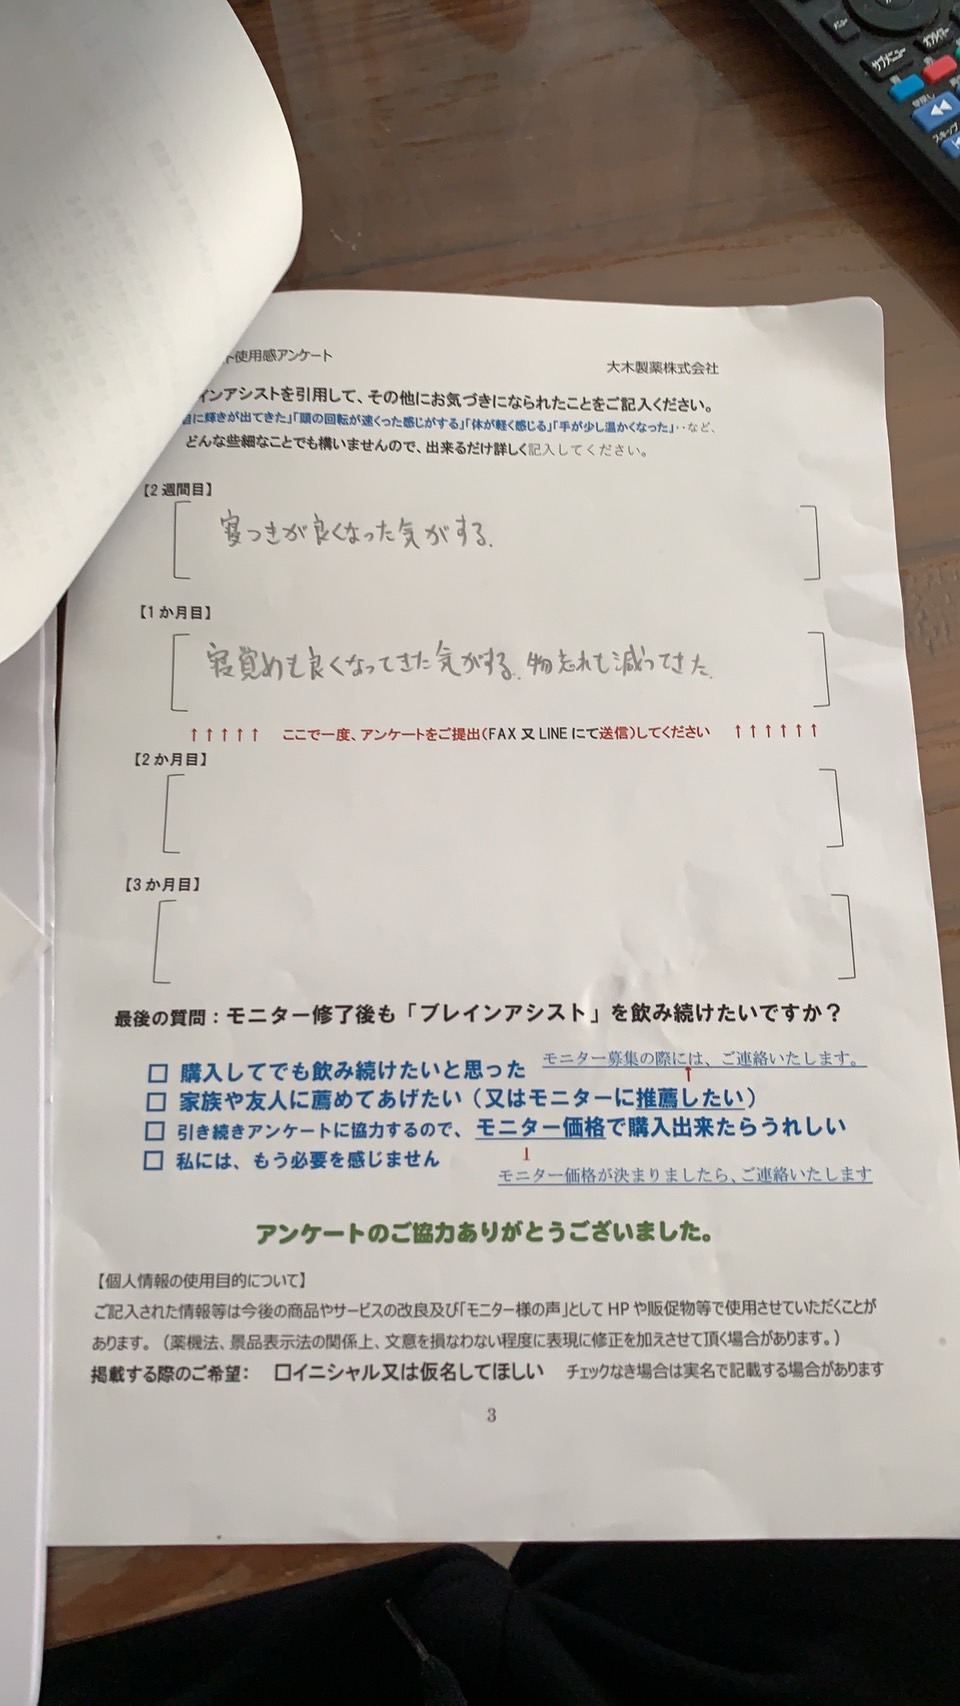 使用感アンケート
大木製薬株式会社
インアシストを引用して、その他にお気づきになられたことをご記入ください。
に輝きが出てきた」「頭の回転が速くった感じがする」「体が軽く感じる」「手が少し温かくなった」‥など、
どんな些細なことでも構いませんので、出来るだけ詳しく記入してください。
【2週間目】
寝つきが良くなった気がする.
【1か月目】
寝覚めも良くなってきた気がする.物忘れも減ってきた.
↑↑↑↑↑ ここで一度、アンケートをご提出(FAX又LINEにて送信)してください ↑↑↑↑↑↑
【2か月目】
【3か月目】
最後の質問：モニター修了後も「ブレインアシスト」を飲み続けたいですか？
□ 購入してでも飲み続けたいと思った モニター募集の際には、ご連絡いたします。
↑
□ 家族や友人に薦めてあげたい（又はモニターに推薦したい）
□ 引き続きアンケートに協力するので、モニター価格で購入出来たらうれしい
□ 私には、もう必要を感じません
モニター価格が決まりましたら、ご連絡いたします
アンケートのご協力ありがとうございました。
【個人情報の使用目的について】
ご記入された情報等は今後の商品やサービスの改良及び「モニター様の声」としてHPや販促物等で使用させていただくことが
あります。（薬機法、景品表示法の関係上、文意を損なわない程度に表現に修正を加えさせて頂く場合があります。）
掲載する際のご希望： □イニシャル又は仮名してほしい チェックなき場合は実名で記載する場合があります
3
サブメニュー